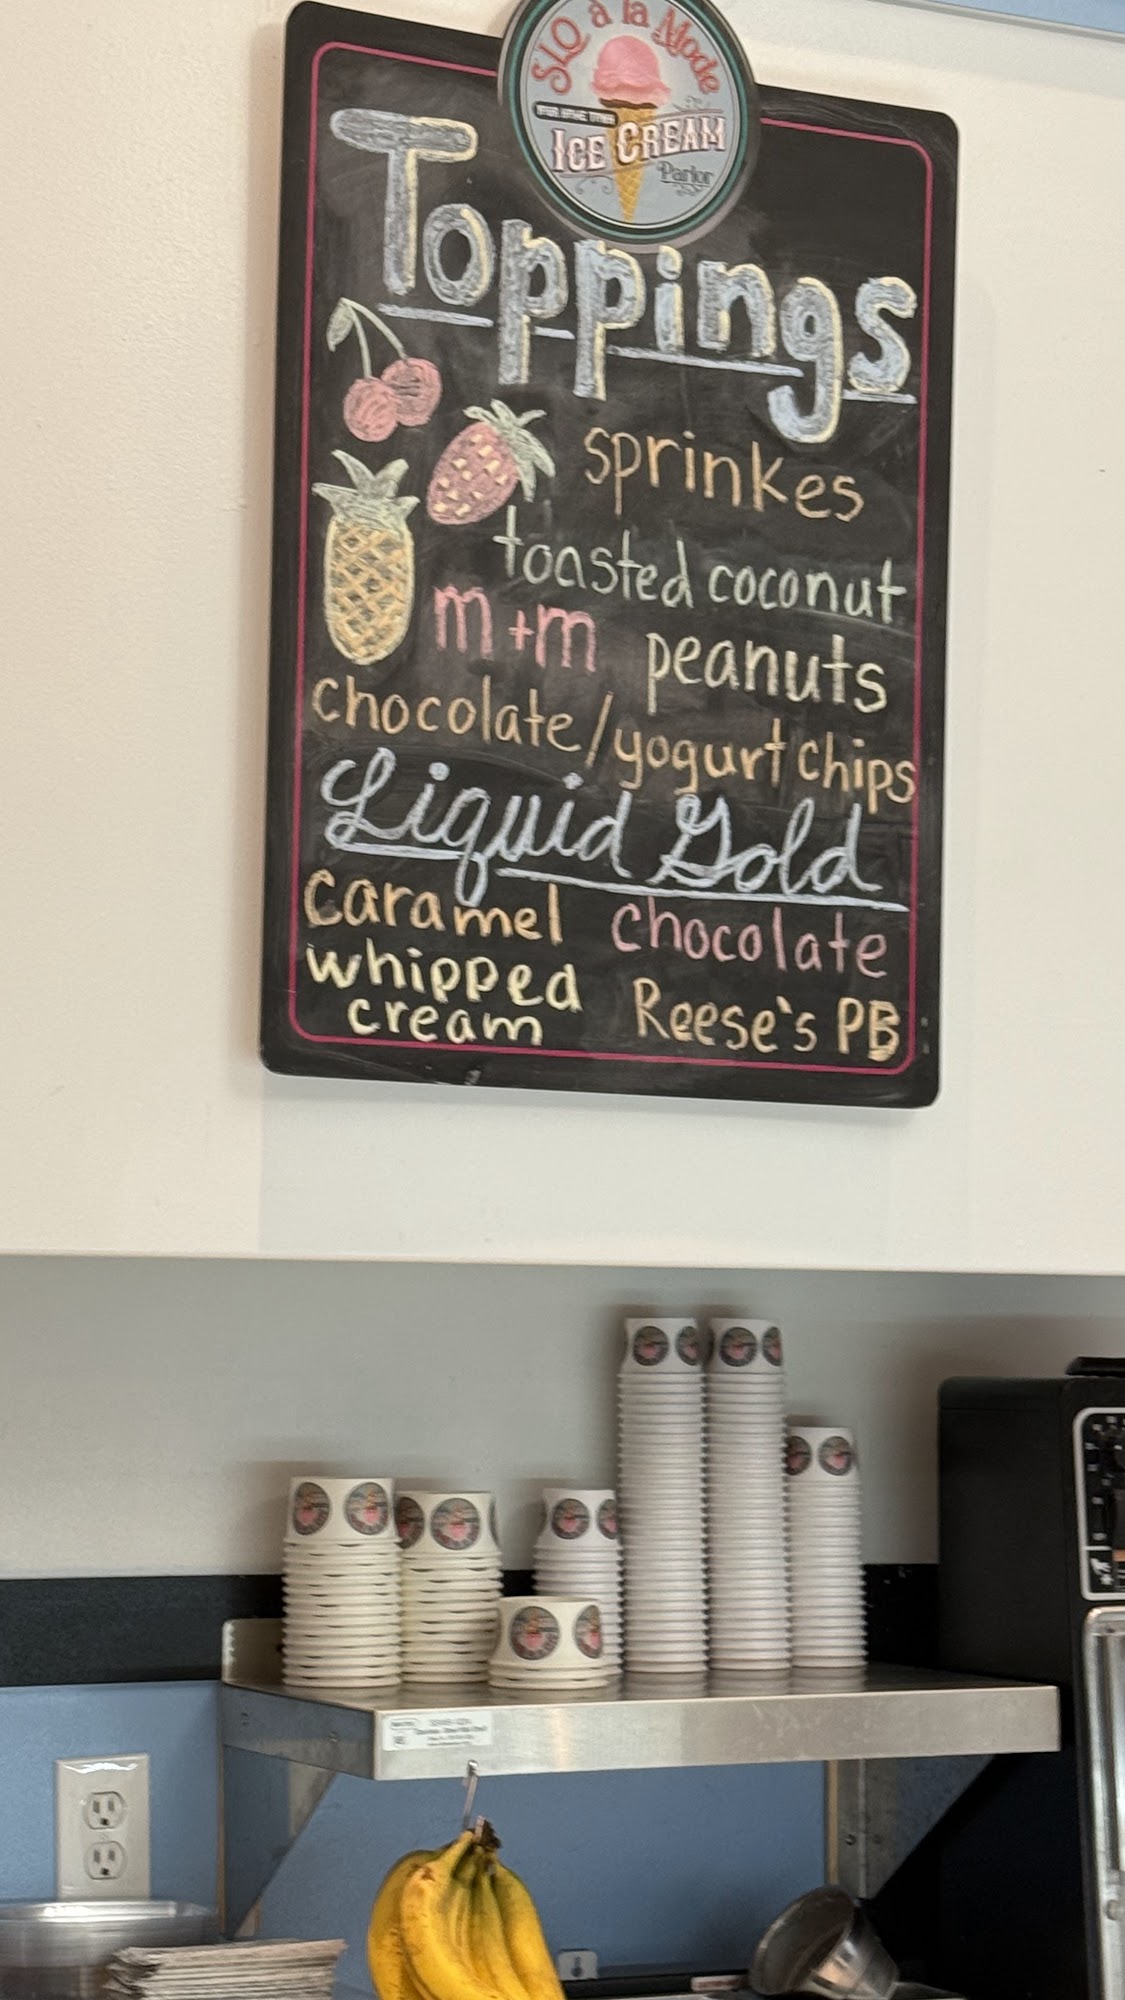 SLO à la Mode
ICE CREAM
Parlor
Toppings
sprinkes
toasted coconut
m+m peanuts
chocolate/yogurt chips
Liquid Gold
caramel chocolate
whipped
cream Reese's PB